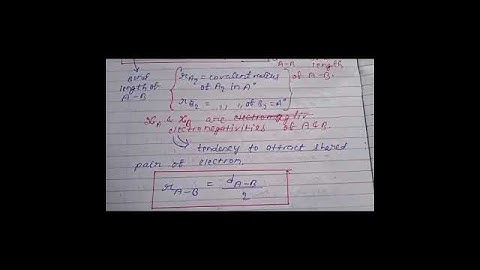 A-B
length
Bond
length of
A-B
r A₂ = covalent radius
of A₂ in A°
of A-B.
r B₂ = ,, ,, of B₂ = A°
χA & χB are
electronegativities of A & B.
tendency to attract shared
pair of electron.
r A-B = d A-B / 2